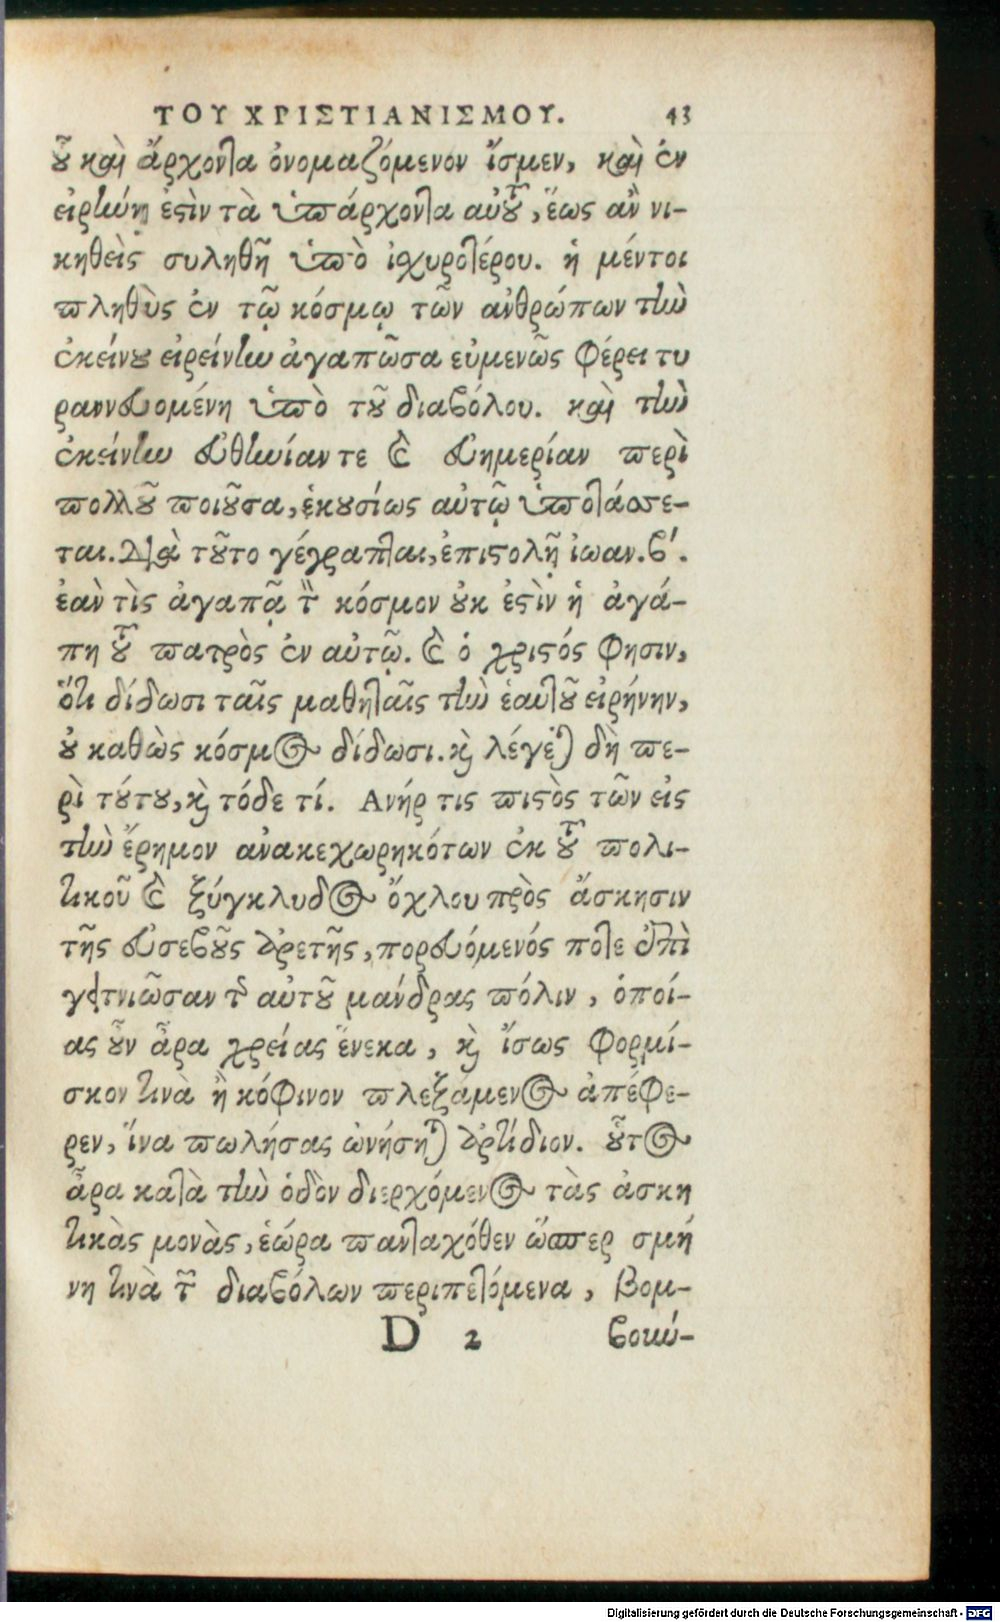 ΤΟΥ ΧΡΙΣΤΙΑΝΙΣΜΟΥ. 43
οὗ καὶ ἄρχοντα ὀνομαζόμενον ἴσμεν, καὶ ἐν
εἰρήνῃ ἐστὶν τὰ ὑπάρχοντα αὐτοῦ, ἕως ἂν νι-
κηθεὶς συληθῇ ὑπὸ ἰσχυροτέρου. ἡ μέντοι
πληθὺς ἐν τῷ κόσμῳ τῶν ἀνθρώπων τὴν
ἐκείνου εἰρείνην ἀγαπῶσα εὐμενῶς φέρει τυ
ραννευομένη ὑπὸ τοῦ διαβόλου. καὶ τὴν
ἐκείνην εὐθηνίαν τε καὶ εὐημερίαν περὶ
πολλοῦ ποιοῦσα, ἑκουσίως αὐτῷ ὑποτάσσε-
ται. Διὰ τοῦτο γέγραπται, ἐπιστολῇ ἰωαν. β΄.
ἐὰν τὶς ἀγαπᾷ τὸν κόσμον οὐκ ἐστὶν ἡ ἀγά-
πη τοῦ πατρὸς ἐν αὐτῷ. καὶ ὁ χριστός φησιν,
ὅτι δίδωσι ταῖς μαθηταῖς τὴν ἑαυτοῦ εἰρήνην,
οὐ καθὼς κόσμος δίδωσι. καὶ λέγεται δὴ πε-
ρὶ τούτου, καὶ τόδε τί. Ανήρ τις πιστὸς τῶν εἰς
τὴν ἔρημον ἀνακεχωρηκότων ἐκ τοῦ πολι-
τικοῦ καὶ ξύγκλυδος ὄχλου πρὸς ἄσκησιν
τῆς εὐσεβοῦς ἀρετῆς, πορευόμενός ποτε ἐπὶ
γειτνιῶσαν τῆς αὐτοῦ μάνδρας πόλιν, ὁποί-
ας οὖν ἆρα χρείας ἕνεκα, καὶ ἴσως φορμί-
σκον τινὰ ἢ κόφινον πλεξάμενος ἀπέφε-
ρεν, ἵνα πωλήσας ὠνήσηται ἀρτίδιον. οὗτος
ἆρα κατὰ τὴν ὁδὸν διερχόμενος τὰς ἀσκη
τικὰς μονὰς, ἑώρα πανταχόθεν ὥσπερ σμή
νη τινὰ τῶν διαβόλων περιπετόμενα, βομ-
D 2 βοιώ-
Digitalisierung gefördert durch die Deutsche Forschungsgemeinschaft - DFG